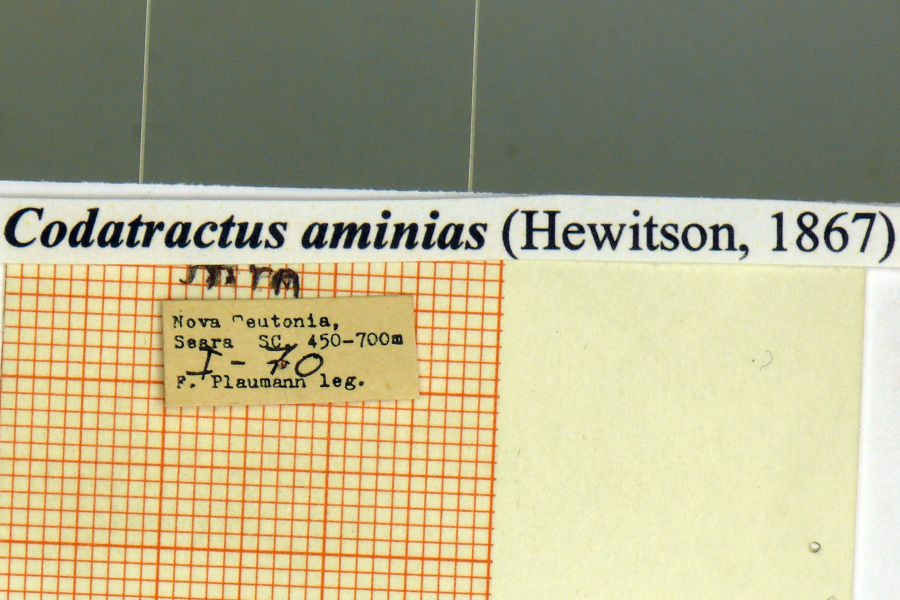 Codatractus aminias (Hewitson, 1867)
mm
Nova Teutonia,
Seara SC. 450-700m
I - 70
F. Plaumann leg.